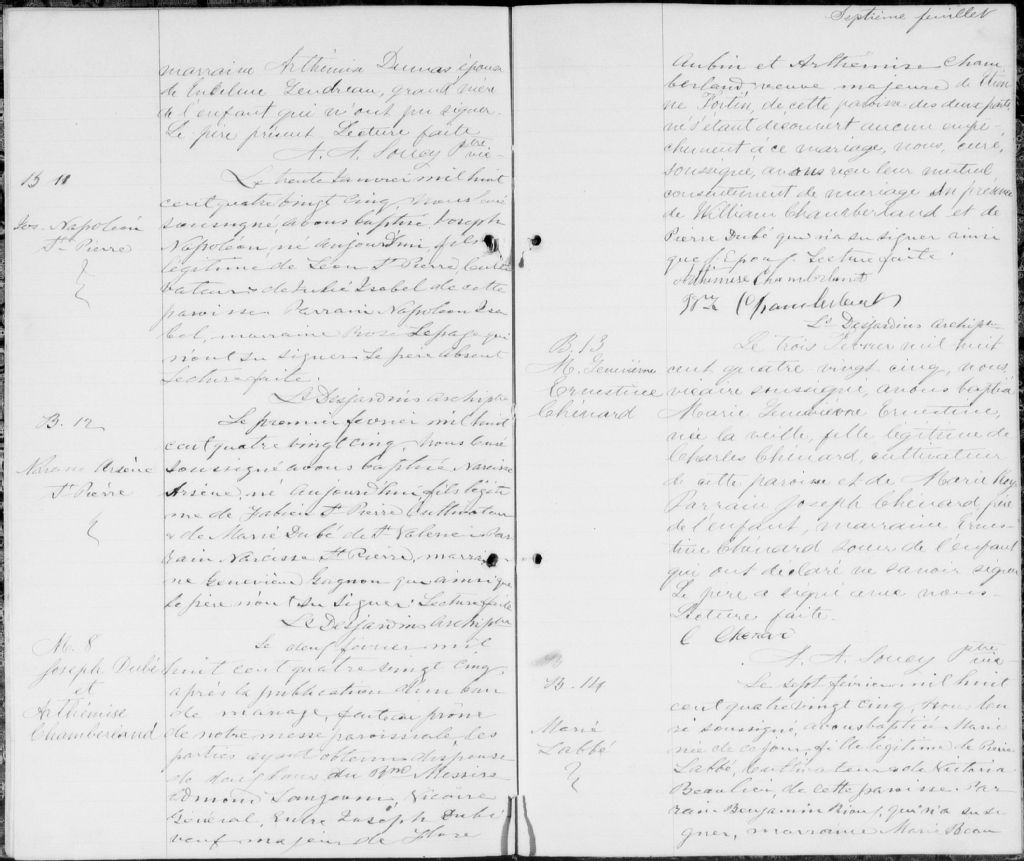 marraine Arthémise Dumas épouse
de Gendreau, grand mère
de l'enfant qui n'ont pu signer.
Le père présent Lecture faite
A. A. Soucy Ptre vic-
B 11
Jos. Napoléon
St Pierre
Le trente Janvier mil huit
cent quatre vingt cinq, nous curé
soussigné avons baptisé Joseph
Napoléon, né aujourd'hui, fils
légitime de Léon St Pierre, Culti
vateur & de Isabel de cette
paroisse Parrain Napoléon Isa
bel, marraine Rose Lepage qui
n'ont su signer. Le père absent
Lecture faite.
Ls Desjardins archiptre
B. 12
Narcisse Arsène
St Pierre
Le premier février mil huit
cent quatre vingt cinq, nous curé
soussigné avons baptisé Narcisse
Arsène, né aujourd'hui, fils légiti
me de Fabien St Pierre Cultivateur
& de Marie Dubé de St Valérien Par
rain Narcisse St Pierre, marrai
ne Geneviève Gagnon qui ainsi que
le père n'ont su signer. Lecture faite
Ls Desjardins archiptre
M. 8
Joseph Dubé
et
Arthémise
Chamberland
Le deux février mil
huit cent quatre vingt cinq
après la publication d'un ban
de mariage, faite au prône
de notre messe paroissiale, les
parties ayant obtenu dispense
de deux bans du Rme Messire
Edmond Langevin, Vicaire
Général, Entre Joseph Dubé
veuf majeur de Flore
Septième feuillet
Aubin et Arthémise Cham
berland, veuve majeure de Etien
ne Fortin, de cette paroisse des deux parts
ne s'étant découvert aucun empê-
chement à ce mariage, nous, curé,
soussigné, avons reçu leur mutuel
consentement de mariage en présence
de William Chamberland et de
Pierre Dubé qui n'a su signer ainsi
que l'Époux. Lecture faite.
Arthémise Chamberland
Wm Chamberland
Ls Desjardins archiptre
B. 13
M. Geneviève
Ernestine
Chénard
Le trois Février mil huit
cent quatre vingt cinq, nous,
vicaire soussigné, avons baptisé
Marie Geneviève Ernestine,
née la veille, fille légitime de
Charles Chénard, cultivateur
de cette paroisse et de Marie Roy.
Parrain Joseph Chénard frère
de l'enfant, marraine Ernes-
tine Chénard soeur de l'enfant
qui ont déclaré ne savoir signer
Le père a signé avec nous-
Lecture faite.
C Chenard
A. A. Soucy Ptre vic
B. 14
Marie
Labbé
Le sept février mil huit
cent quatre vingt cinq, nous, cu
ré soussigné, avons baptisé Marie
née de ce jour, fille légitime de Pierre
Labbé, Cultivateur & de Victoria
Beaulieu, de cette paroisse. Par
rain Benjamin Rioux, qui n'a su si
gner, marraine Marie Beau